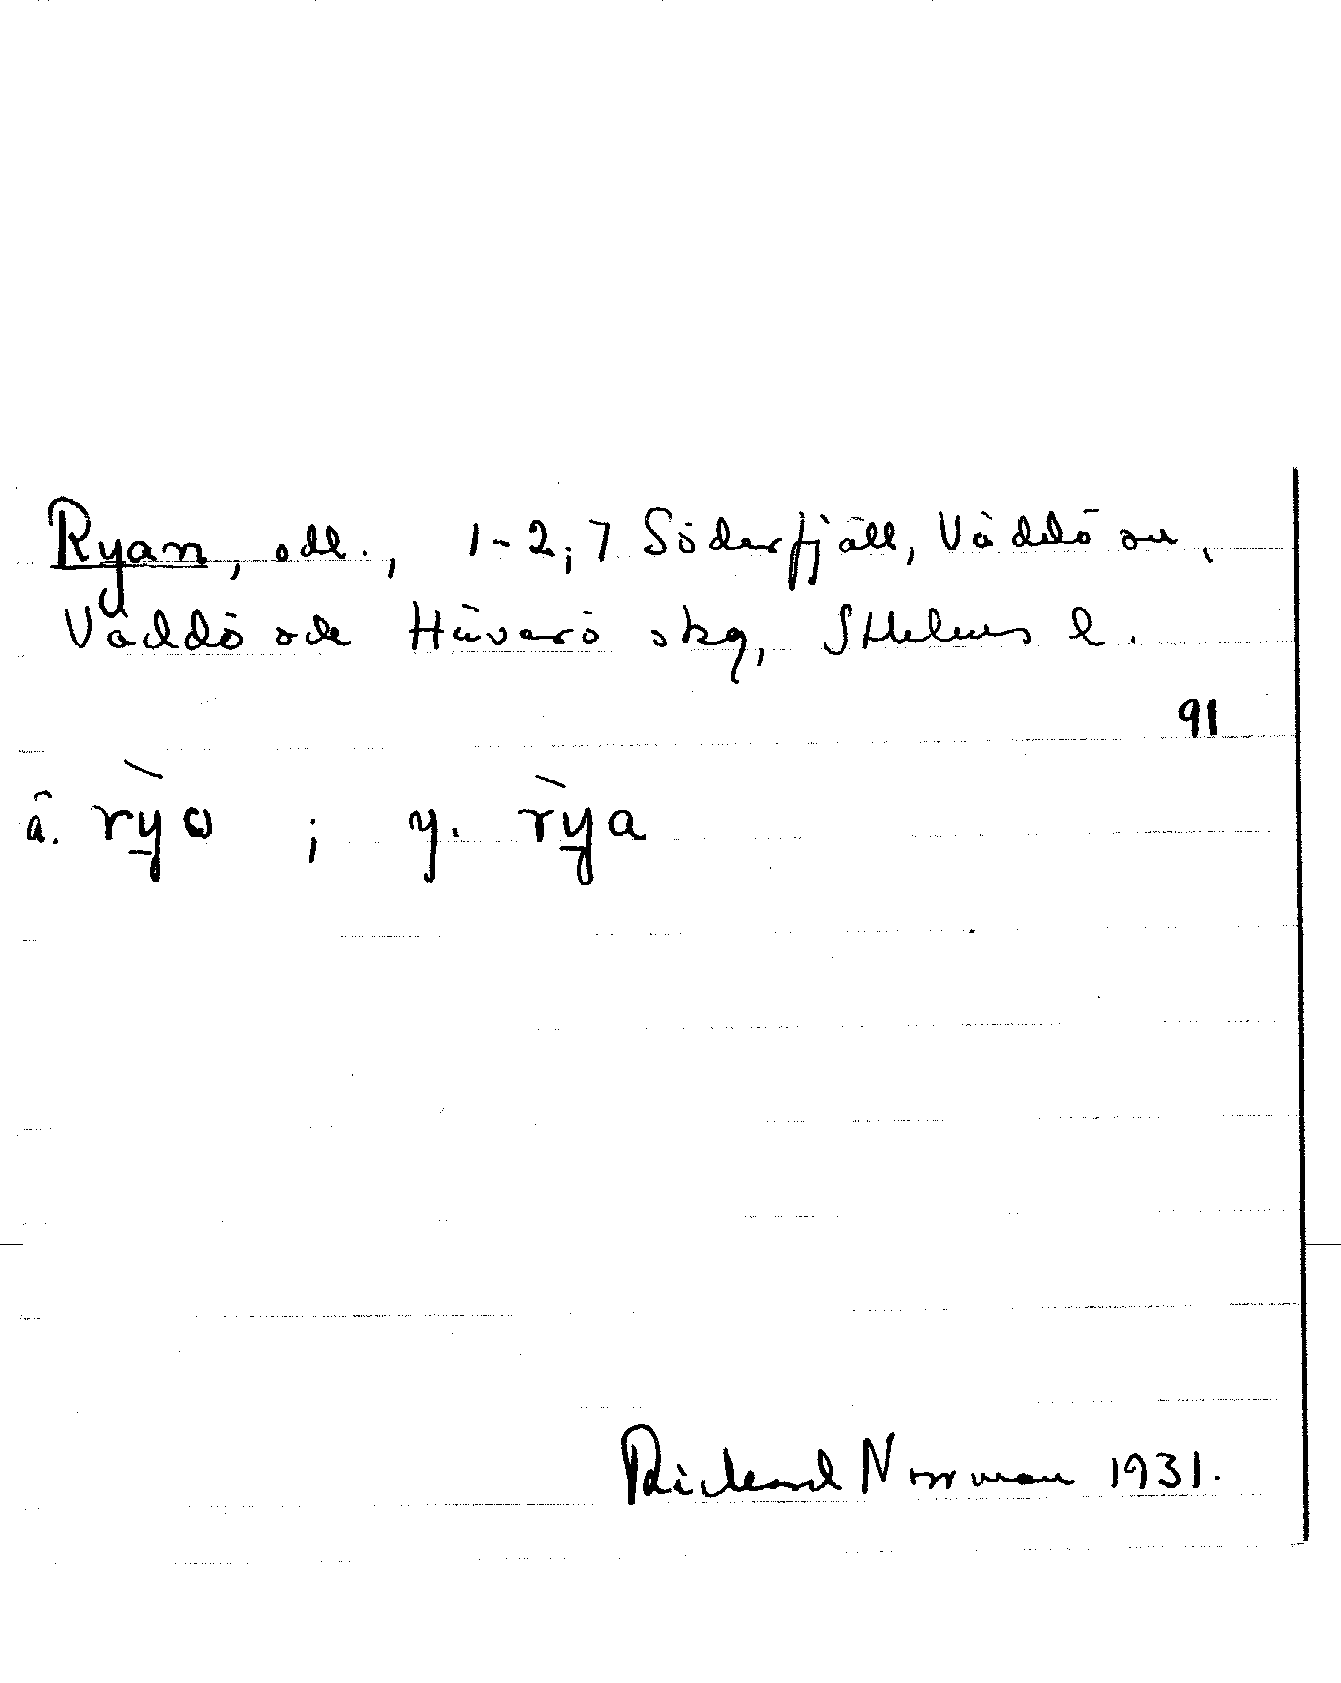 Ryan, odl., 1-2; 7 Söderfjäll, Väddö sn,
Väddö och Häverö skg, Sthlms l.
91
ä. rỳω ; y. rỳa
Rickard Norrman 1931.